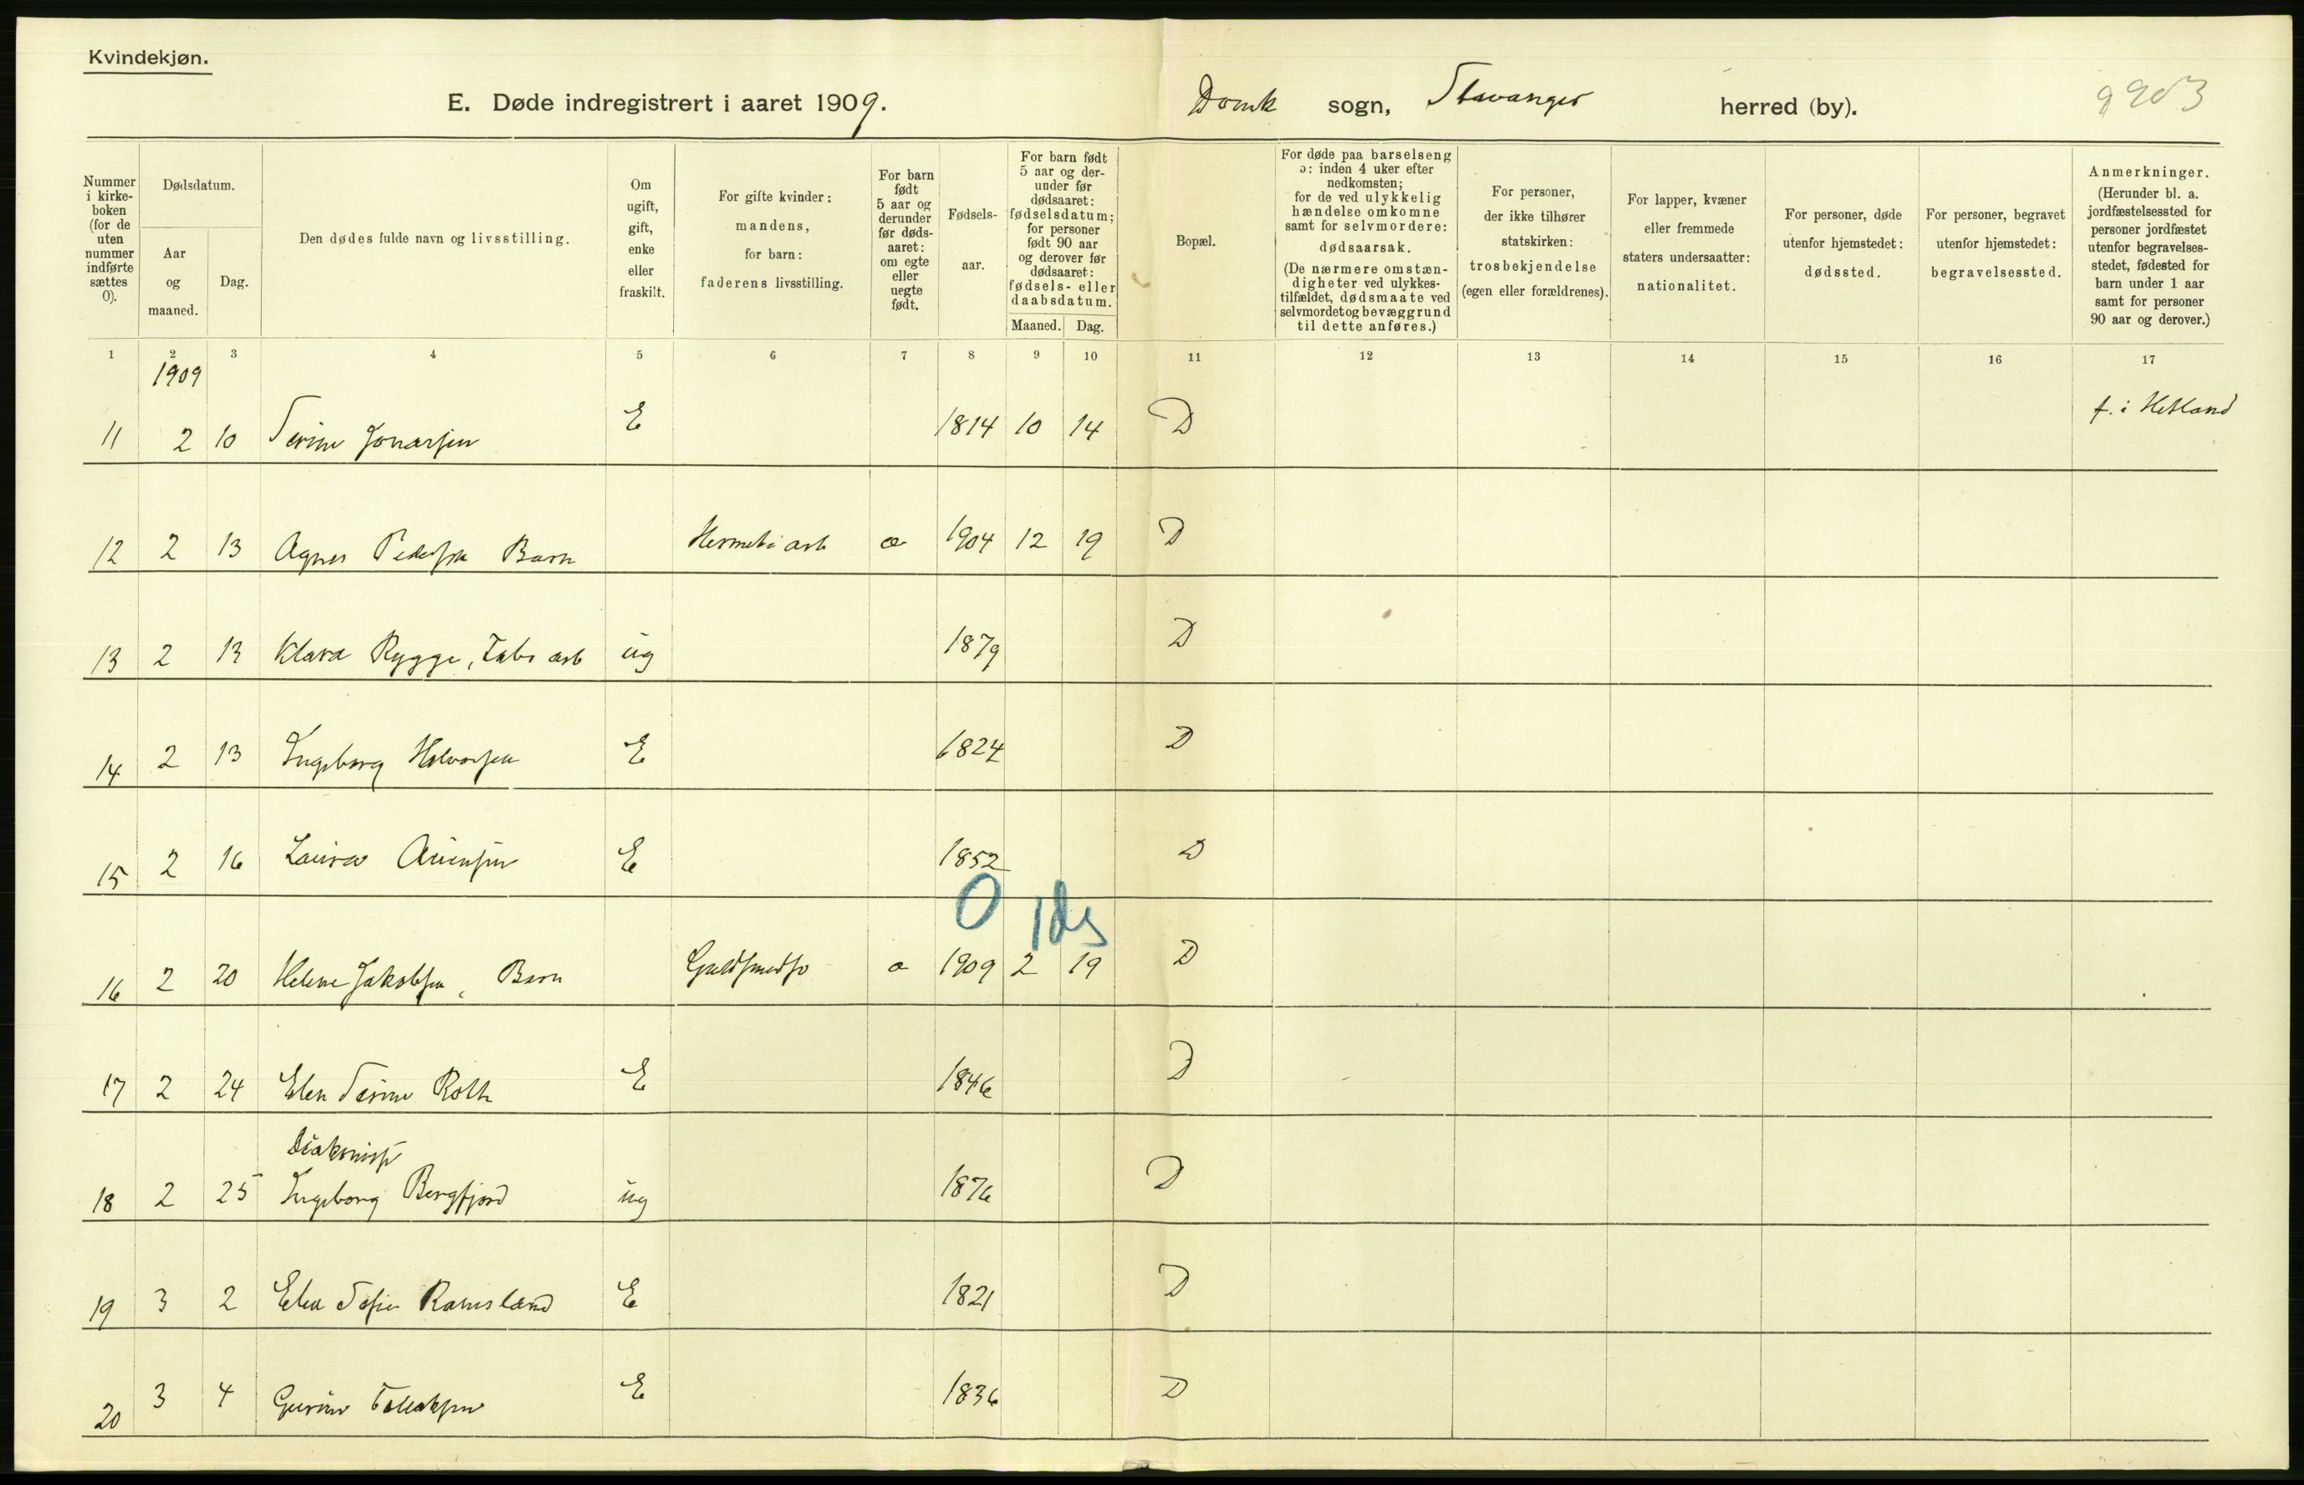 Kvindekjøn.
E. Døde indregistrert i aaret 1909. Domk sogn, Stavanger herred (by).
Nummer i kirke-boken (for de uten nummer indførte sættes 0).
Dødsdatum.
Aar og maaned.
Dag.
Den dødes fulde navn og livsstilling.
Om ugift, gift, enke eller fraskilt.
For gifte kvinder: mandens, for barn: faderens livsstilling.
For barn født 5 aar og derunder før døds-aaret: om egte eller uegte født.
Fødsels-aar.
For barn født 5 aar og der-under før dødsaaret: fødselsdatum; for personer født 90 aar og derover før dødsaaret: fødsels- eller daabsdatum.
Maaned. Dag.
Bopæl.
For døde paa barselseng ɔ: inden 4 uker efter nedkomsten; for de ved ulykkelig hændelse omkomne samt for selvmordere: dødsaarsak. (De nærmere omstæn-digheter ved ulykkes-tilfældet, dødsmaate ved selvmordet og bevæggrund til dette anføres.)
For personer, der ikke tilhører statskirken: trosbekjendelse (egen eller forældrenes).
For lapper, kvæner eller fremmede staters undersaatter: nationalitet.
For personer, døde utenfor hjemstedet: dødssted.
For personer, begravet utenfor hjemstedet: begravelsessted.
Anmerkninger. (Herunder bl. a. jordfæstelsessted for personer jordfæstet utenfor begravelses-stedet, fødested for barn under 1 aar samt for personer 90 aar og derover.)
1 2 3 4 5 6 7 8 9 10 11 12 13 14 15 16 17
1909
11 2 10 Serine Jonassen E 1814 10 14 D f. i Hetland
12 2 13 Agnes Pedersen Barn Hermetikarb æ 1904 12 19 D
13 2 13 Klara Rygge, Fabr arb ug 1879 D
14 2 13 Ingeborg Halvorsen E 1824 D
15 2 16 Laura E 1852 D
0 1ds
16 2 20 Helene Jakobsen, Barn Guldsmedsv 1909 2 19 D
17 2 24 Elen Serine Roth E 1846 D
Diakonisse
18 2 25 Ingeborg Bergfjord ug 1876 D
19 3 2 Elen Sofie Ramsland E 1821 D
20 3 4 Gurine Tollaksen E 1836 D